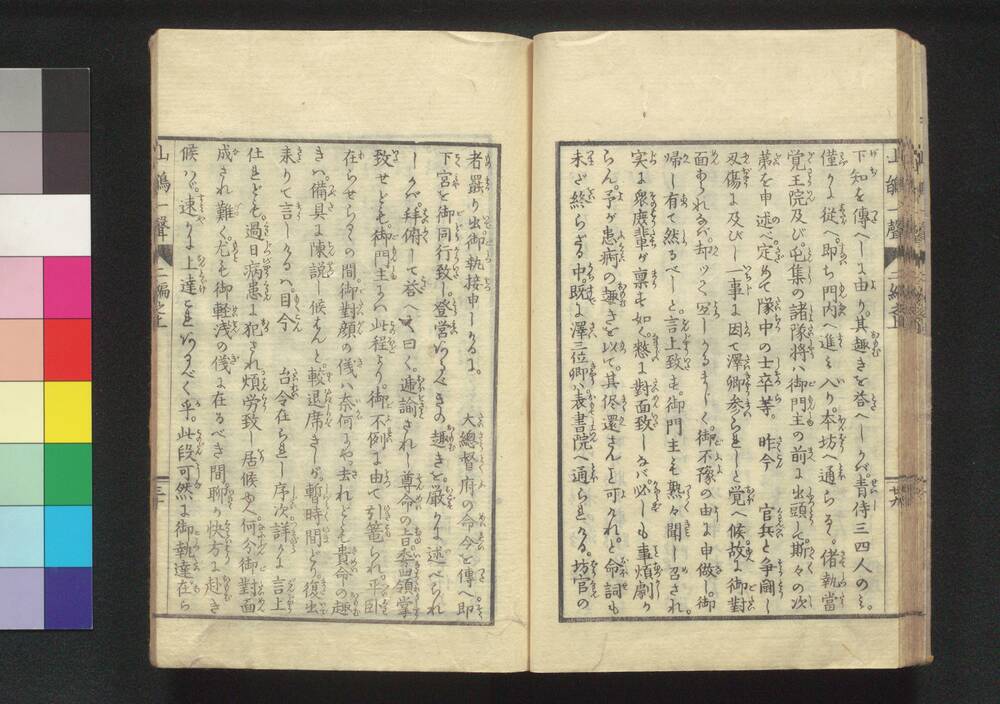 下知を傳へしに由り。其趣きを答へしかバ。青侍三四人のミ。
僅かに從へ。即ち門内へ進ミ入り。本坊へ通らる。偖執當
覚王院及び。屯集の諸隊將ハ。御門主の前に出頭し。斯々の次
第を申述べ。定めて隊中の士卒等。昨今 官兵と争闘し
刄傷に及びし一事に因て。澤卿参られしと覚へ候。故に御對
面あられなバ。却ッて
帰し有て然るべしと。言上致せ。御門主も熟々聞し召され。
実に衆慶輩が稟す如く。愁に對面致しなバ。必しも事煩劇か
らん。予が患病の趣きを以て。其侭還さんこそ可かれ。と命詞も
未だ終らざる中。既に澤三位卿ハ。表書院へ通られける。坊官の
者罷り出。御執接申しかるに。 大總督府の命令を傳へ。即
下宮を御同行致し。登営
しかバ。拝俯して答へて曰く。連諭されし尊命の旨。畨領掌
致せども。御門主にハ此程より。御不例に由て引篭られ。平臥
在らせらるゝの間。御對顔の儀ハ奈何にや。去れども貴命の趣
きハ。備具に陳説し候はんと。較退席せしが。暫時間どり復出
来りて言しけるハ。目今 台令在られし序次。詳に言上
仕れども。過日病患に犯され。煩労致し居候へハ。何分御對面
成され難く。尤も御軽浅の儀に在るべき間。聊か快方に赴き
候ハヾ。速かに上達
山鵑一聲 二編之上
廿九
三十